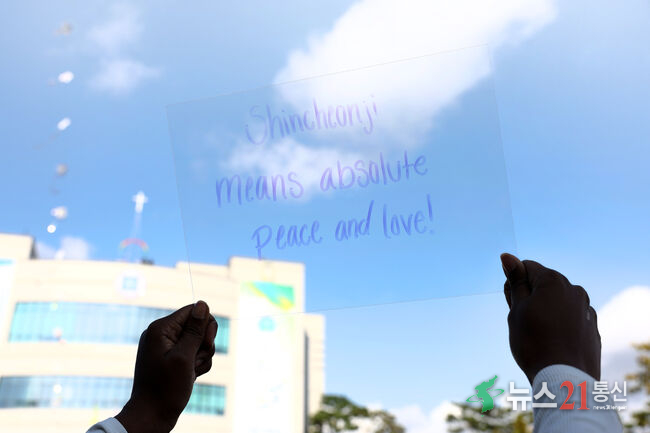 Shincheonji
means absolute
peace and love!
뉴스21통신